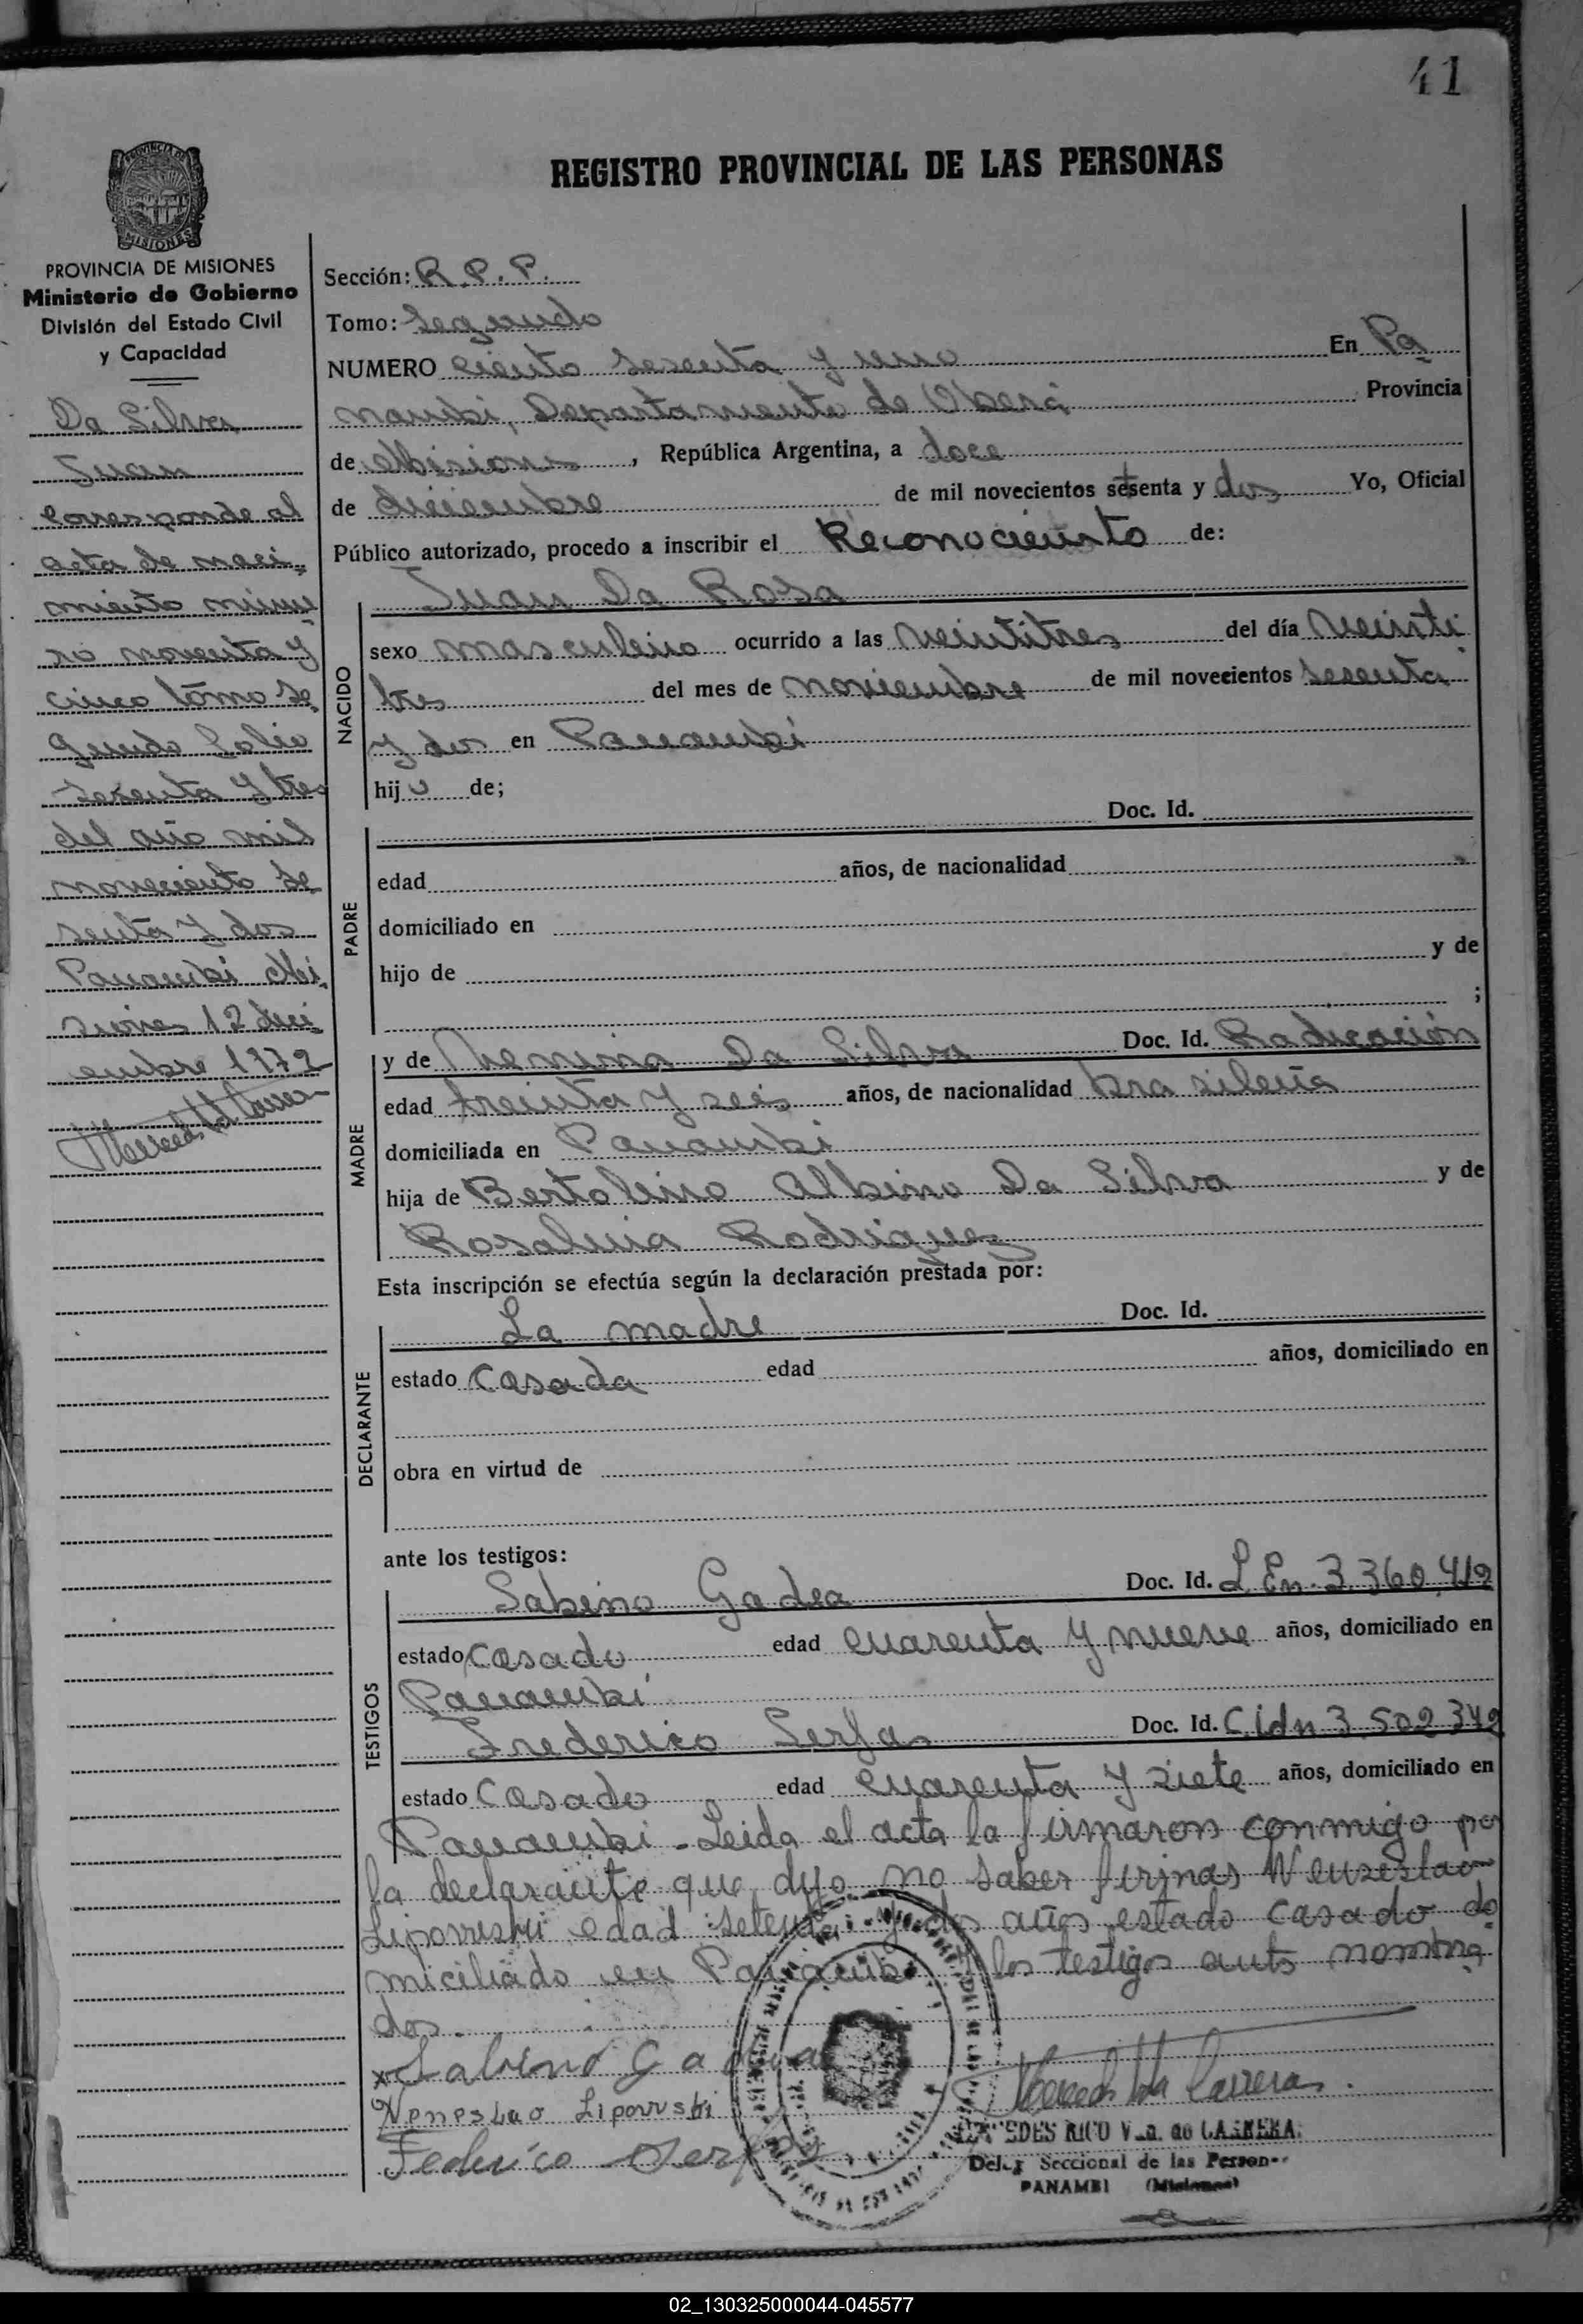 41
REGISTRO PROVINCIAL DE LAS PERSONAS
MISIONES
PROVINCIA DE MISIONES
Ministerio de Gobierno
División del Estado Civil
y Capacidad
Da Silva
Juan
Corresponde al
acta de naci-
miento núme
ro noventa y
cinco tómo se
gundo folio
sesenta y tres
del año mil
noveciento se
senta y dos
Panambi Mi
siones 12 dici
embre 1972
Sección: R.P.P.
Tomo: Segundo
NUMERO ciento sesenta y uno En Pa
nambi, Departamento de Oberá Provincia
de Misiones, República Argentina, a doce
de diciembre de mil novecientos setenta y dos Yo, Oficial
Público autorizado, procedo a inscribir el Reconocimiento de:
Juan Da Rosa
NACIDO
sexo masculino ocurrido a las veintitres del día veinti
tres del mes de noviembre de mil novecientos sesenta
y dos en Panambi
hijo de;
PADRE
Doc. Id.
edad años, de nacionalidad
domiciliado en
hijo de y de
;
MADRE
y de Da Silva Doc. Id. Radicación
edad treinta y seis años, de nacionalidad brasileña
domiciliada en Panambi
hija de Bertolino Albino Da Silva y de
Rosalina Rodriguez
Esta inscripción se efectúa según la declaración prestada por:
DECLARANTE
La madre Doc. Id.
estado Casada edad años, domiciliado en
obra en virtud de
ante los testigos:
TESTIGOS
Sabino Gadea Doc. Id. L.En. 3.360.412
estado Casado edad cuarenta y nueve años, domiciliado en
Panambi
Frederico Serfas Doc. Id. C.Idn 3.502.342
estado Casado edad cuarenta y siete años, domiciliado en
Panambi - Leida el acta la firmaron conmigo por
la declarante que dijo no saber firmas Wenzeslao
Liporvski edad setenta y dos años estado casado do
miciliado en Panambi y los testigos ants nombra
dos.
x Sabino Gadea
Neneslao Liporvski
Federico Serfas
MERCEDES RICO Vda. de CARRERA
Deleg Seccional de las Person
PANAMBI (Misiones)
02_130325000044-045577